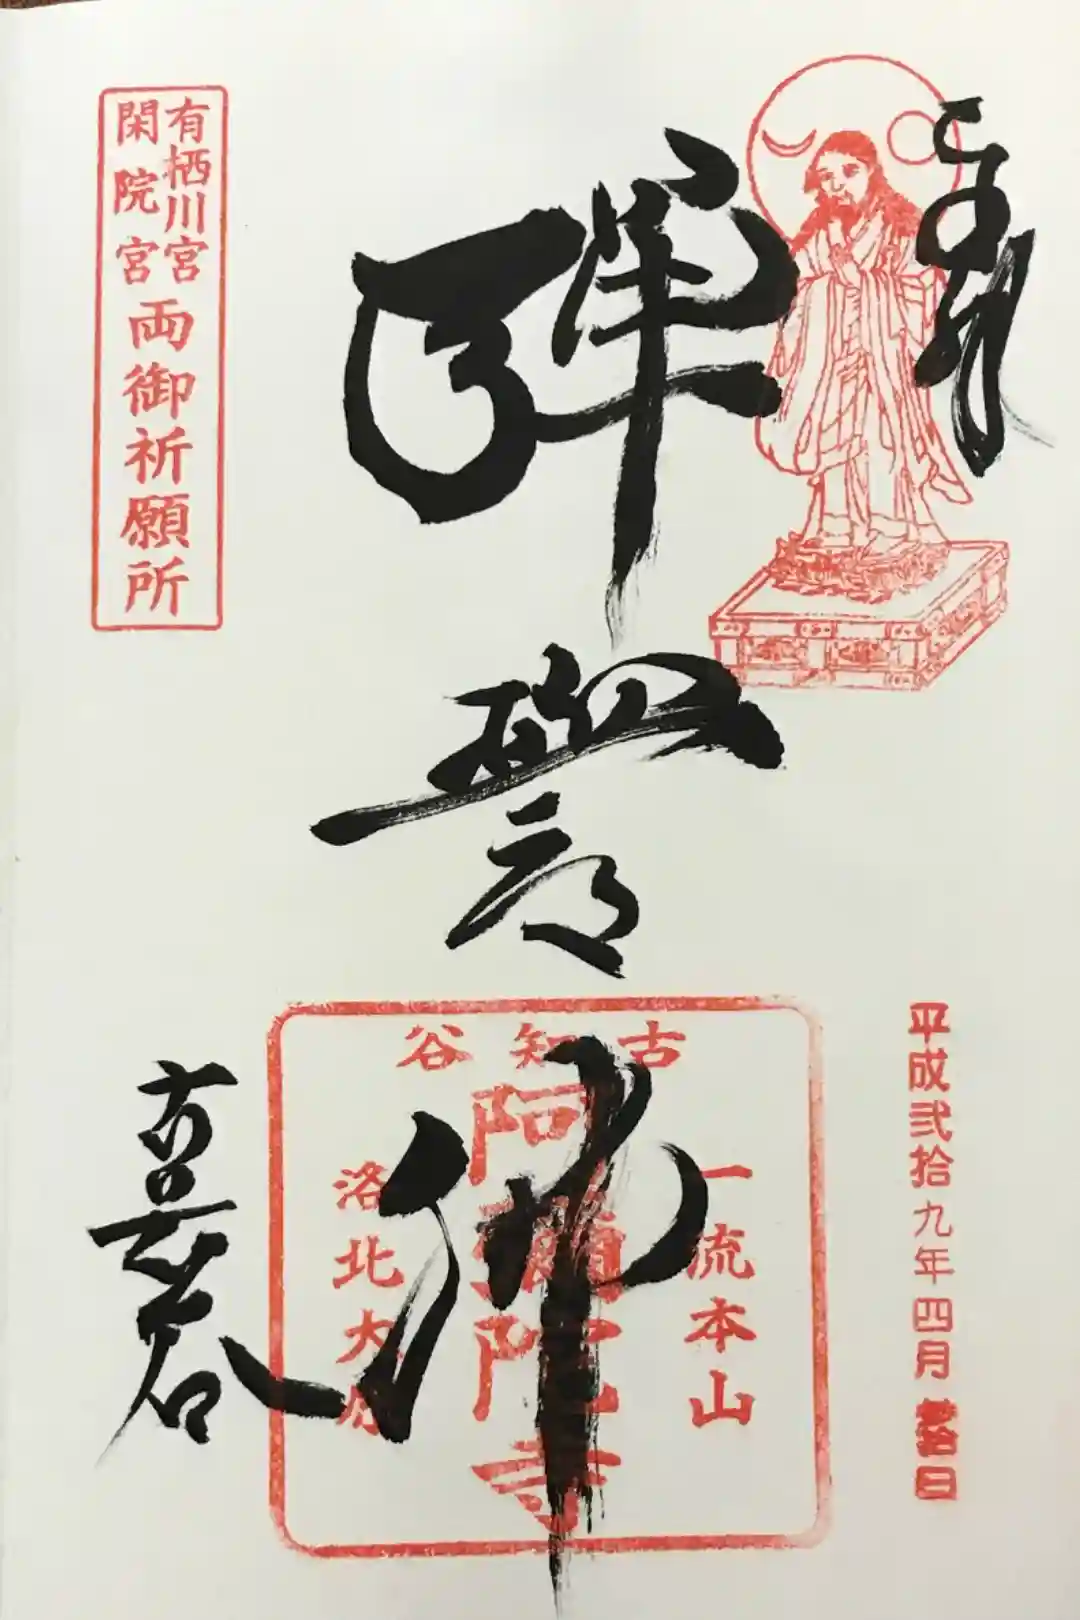 奉拝
弾誓佛
古知谷
一流本山
阿彌陀寺
洛北大原
平成弐拾九年四月
日
有栖川宮
閑院宮
両御祈願所